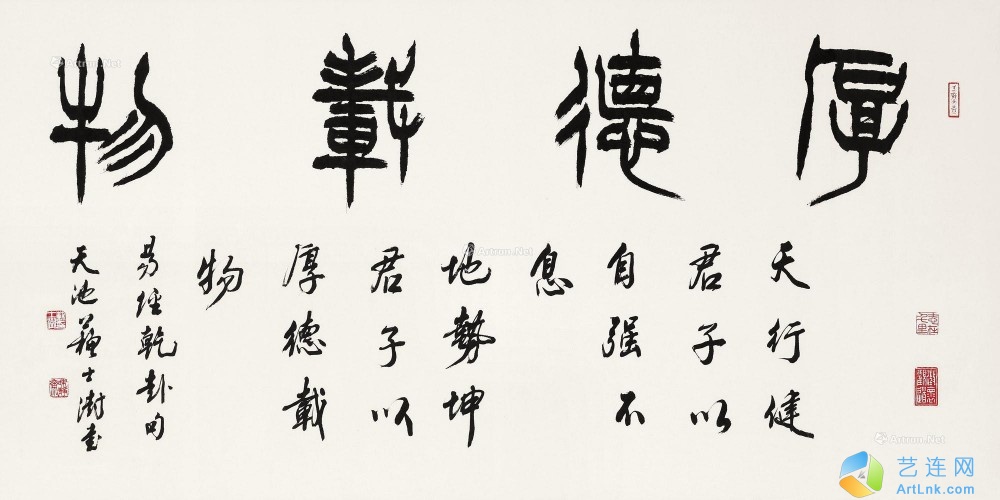 厚德載物
天行健
君子以
自强不
息
地勢坤
君子以
厚德載
物
易经乾卦句
天池蘇士澍书
艺连网
ArtLnk.com
Artron.Net
Artron.Net
Artron.Net